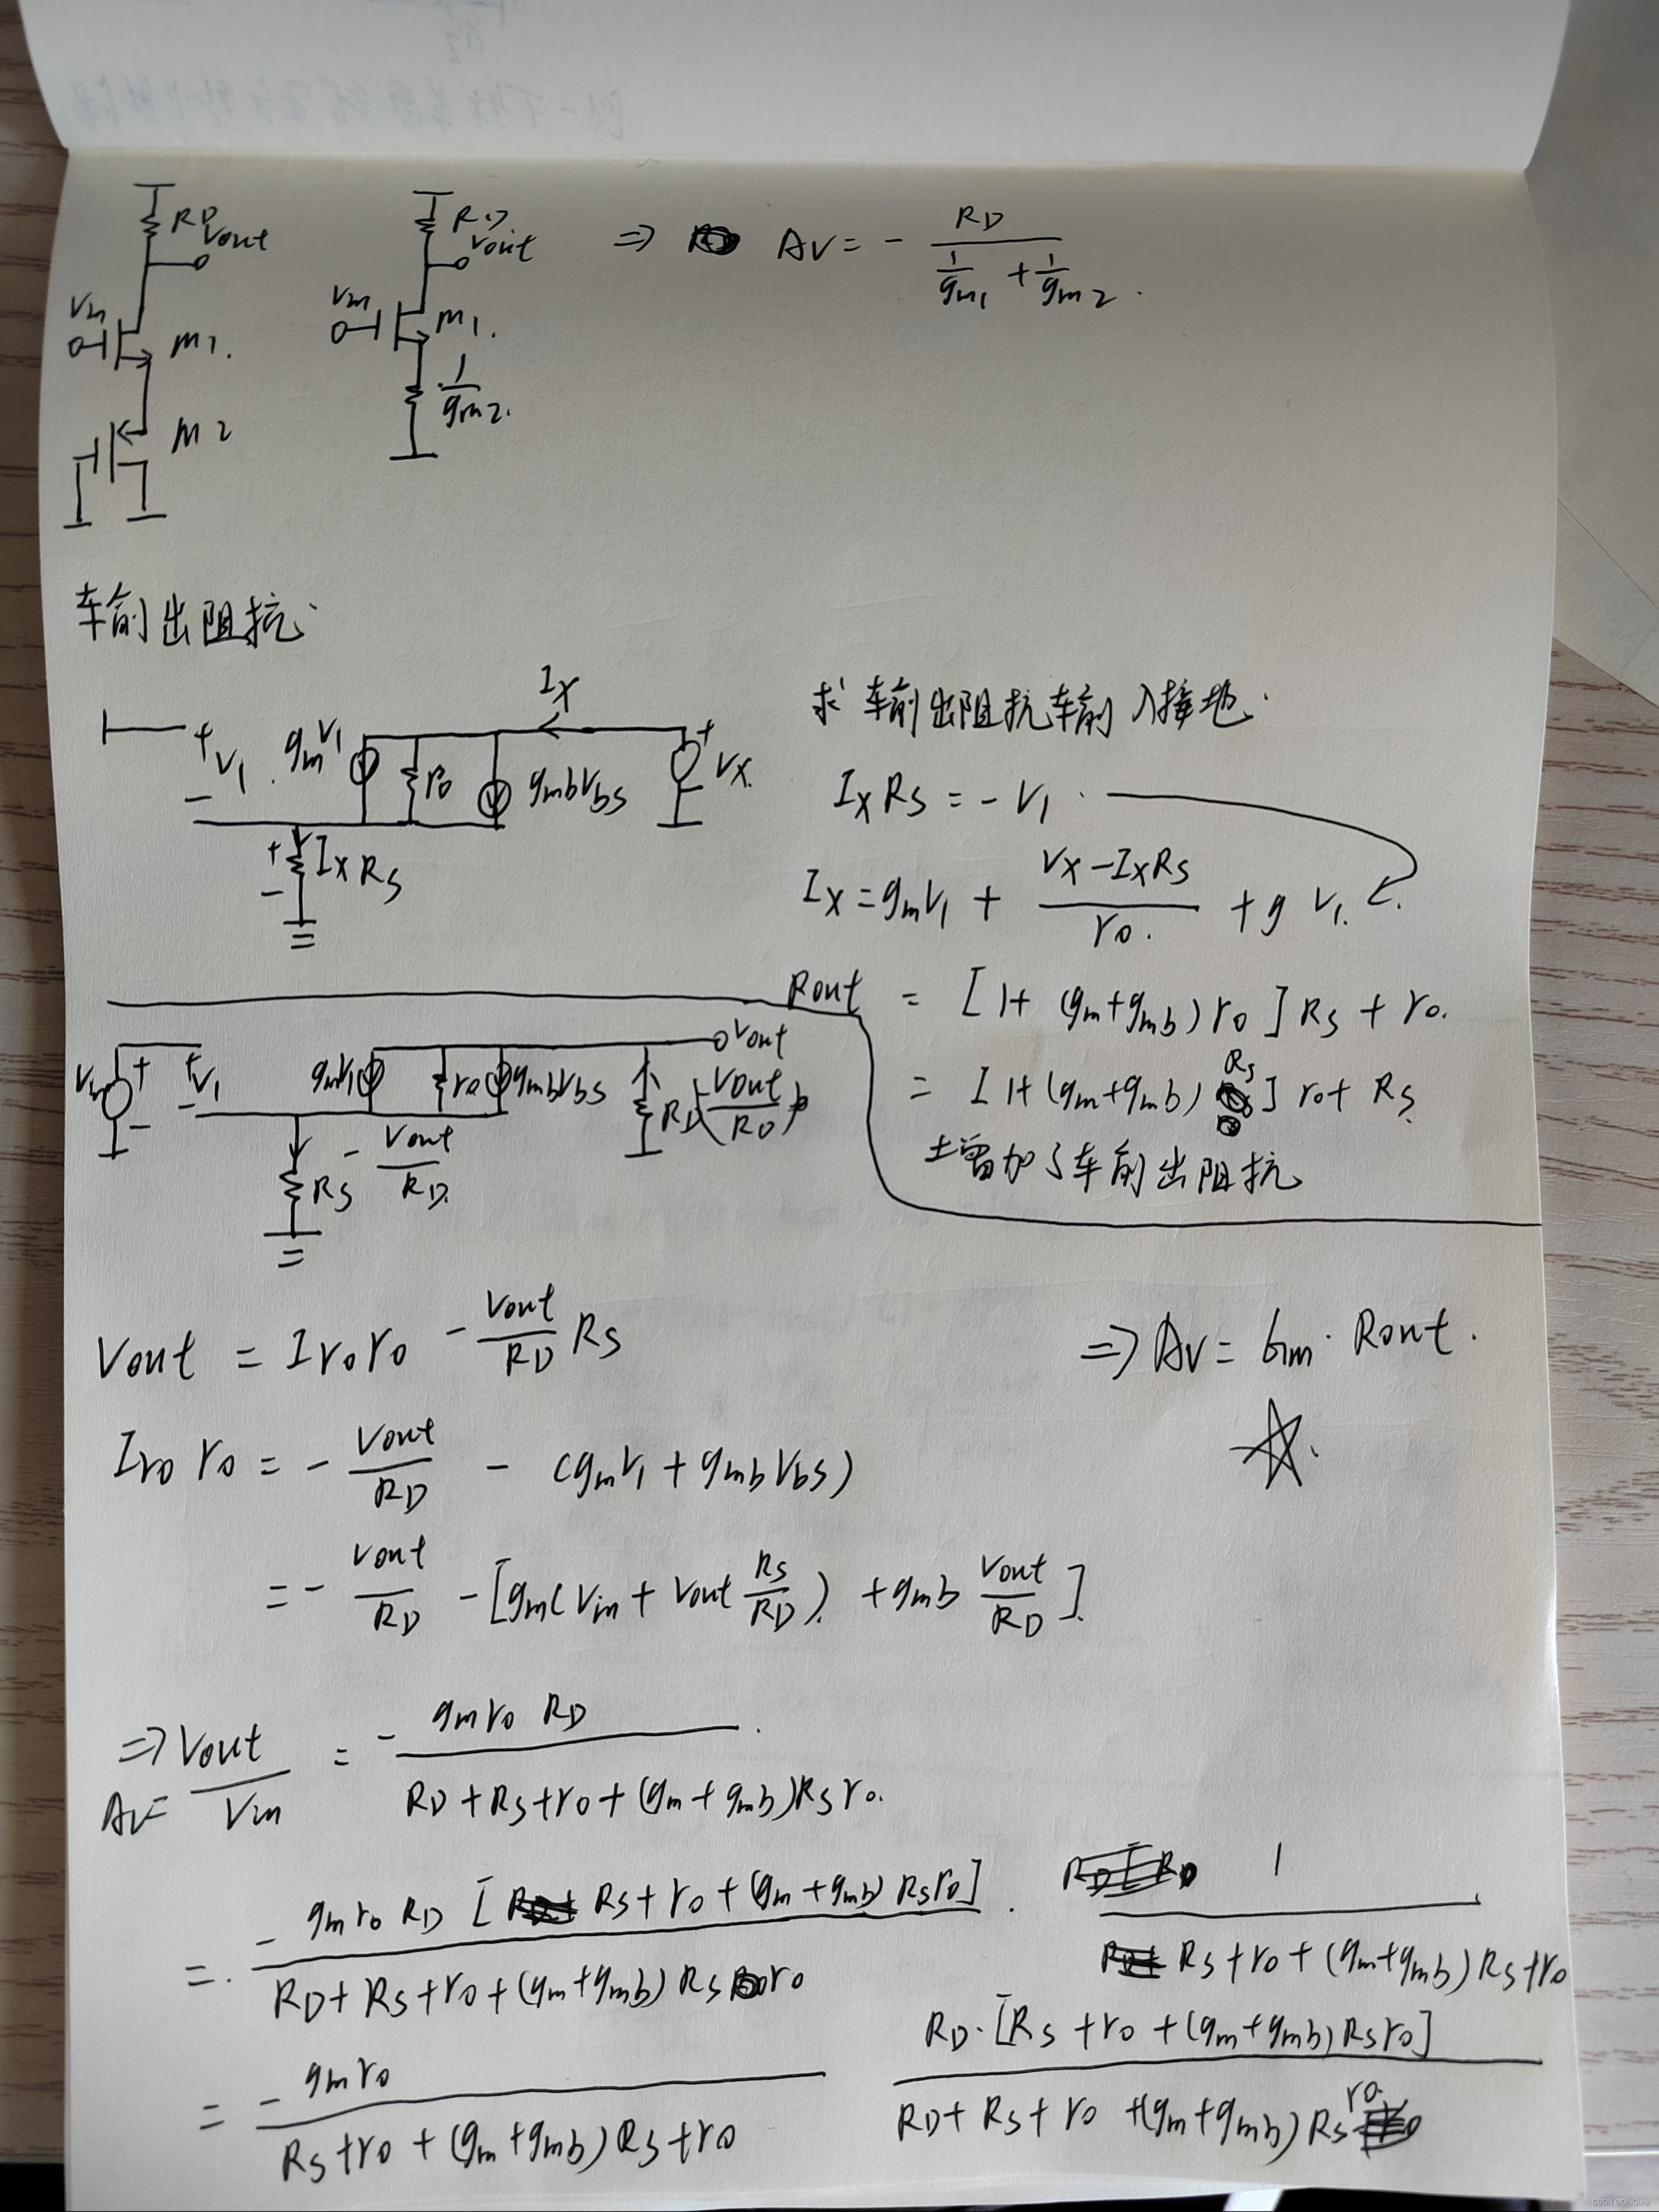 RD Vout
Vin M1.
M2
RD Vout
Vin M1.
1/gm2.
⇒ AV = - RD / (1/gm1 + 1/gm2).
输出阻抗.
+ V1 - gmV1 ro gmbVbs IX + VX.
+ - IX RS
求输出阻抗输入接地.
IX RS = - V1.
IX = gmV1 + (VX - IXRS)/ro. + g V1.
Rout = [1+ (gm+gmb) ro] RS + ro.
= [1+(gm+gmb) RS] ro + RS
增加了输出阻抗
Vin + - + V1 - gmV1 ro gmbVbs Vout
RD (Vout/RD)
RS - Vout/RD.
Vout = Iro ro - Vout/RD RS
⇒ AV = Gm · Rout.
Iro ro = - Vout/RD - (gmV1 + gmbVbs)
= - Vout/RD - [gm(Vin + Vout RS/RD) + gmb Vout/RD].
⇒ AV = Vout/Vin = - gmro RD / (RD + RS + ro + (gm + gmb)RS ro.)
= - gmro RD [RS + ro + (gm + gmb) RSro] / (RD + RS + ro + (gm+gmb) RS ro) . 1 / (RS + ro + (gm+gmb) RS + ro)
= - gmro / (RS + ro + (gm + gmb) RS + ro) RD · [RS + ro + (gm+gmb) RSro] / (RD + RS + ro + (gm+gmb) RS ro.)